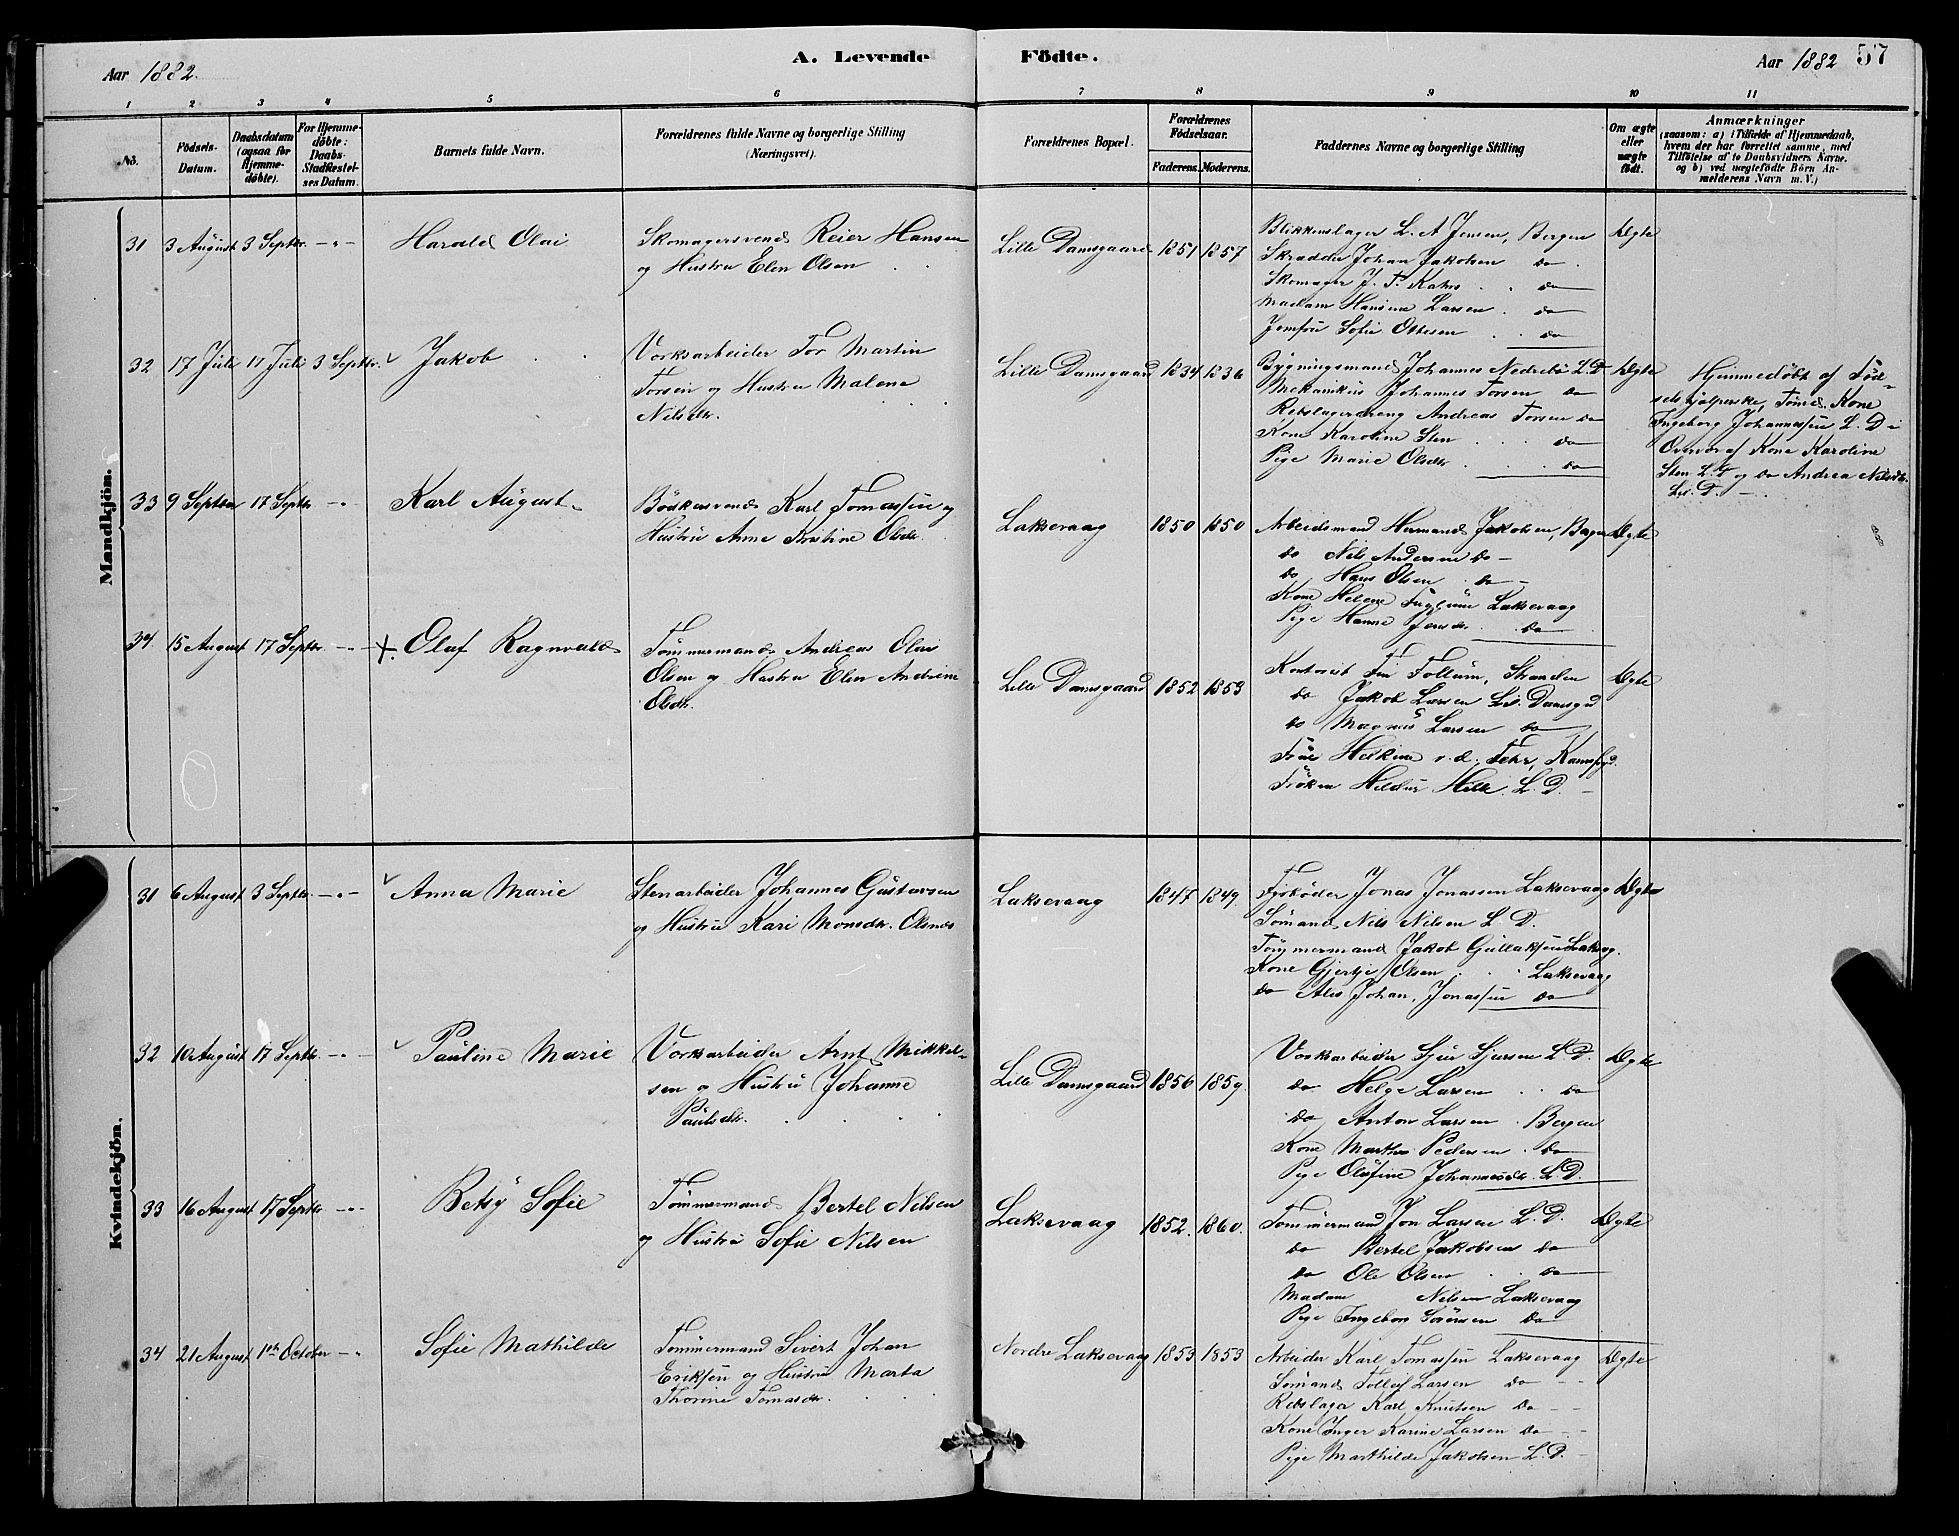 A. Levende Födte.
Aar 1882.
Aar 1882 57
1 2 3 4 5 6 7 8 9 10 11
No.
Födsels-Datum.
Daabsdatum (ogsaa for Hjemme-döbte).
For Hjemme-döbte: Daabs-Stadfæstel-ses Datum.
Barnets fulde Navn.
Forældrenes fulde Navne og borgerlige Stilling (Næringsvei).
Forældrenes Bopæl.
Forældrenes Födselsaar.
Faderens. Moderens.
Faddernes Navne og borgerlige Stilling
Om ægte eller uægte födt.
Anmærkninger
(saasom: a) i Tilfælde af Hjemmedaab,
hvem der har forrettet samme, med
Tilföielse af to Daabsvidners Navne.
og b) ved uægtefödte Börn An-
melderens Navn m. V.)
Mandkjön.
31 3 August 3 Septbr. -"- Harald Olai
Skomagersvend Reier Hansen
og Hustru Elen Olsen
Lille Damsgaard 1851 1857
Blikkenslager L. A Jensen, Bergen
Skrædder Johan Jakobsen do
Skomager J. T. Kahrs do
Madam Hansine Larsen do
Jomfru Sofie Ottesen do
Ægte
32 17 Juli 17 Juli 3 Septbr. Jakob
Værksarbeider Tor Martin
Torsen og Hustru Malene
Nilsdtr.
Lille Damsgaard 1834 1836
Bygningsmand Johannes Nedrebö L. D
Mekanikus Johannes Torsen do
Rebslagerdreng Andreas Torsen do
Kone Karoline Sten do
Pige Marie Olsdtr do
Ægte
Hjemmedöbt af Föd-
selshjælperske, Tömd. Kone
Ingeborg Johannessen L. D i
Overvær af Kone Karoline
Sten L. D og do Andrea Nilsdtr.
L. D.
33 9 Septbr 17 Septbr -"- Karl August
Bödkersvend Karl Tomassen og
Hustru Anne Kristine Olsdtr
Laksevaag 1850 1850
Arbeidsmand Hermand Jakobsen, Bergen
do Nils Andersen do
do Hans Olsen do
Kone Helene Laksevaag
Pige Hanne Jensdr do
Ægte
34 15 August 17 Septbr. -"- Olaf Ragnvald
Tömmermand Andreas Olai
Olsen og Hustru Elen Andrine
Olsdtr.
Lille Damsgaard 1852 1853
Kontorist Tollum, Stranden
do Jakob Larsen Lil. Damsgd
do Magnus Larsen do
Frue v. d. Fehr,
Fröken Hildur L. D.
Ægte
Kvindekjön.
31 6 August 3 Septbr. -"- Anna Marie
Stenarbeider Johannes Gustavsen
og Hustru Kari Monsdtr. Olsnes
Laksevaag 1847 1849.
Jonas Jonassen Laksevaag
Sömand Nils Nilsen L. D.
Tömmermand Jakob Gullaksen Laksvg.
Kone Gjertje Olsen Laksevaag
do Johan. Jonassen do
Ægte
32 10 August 17 Septbr. -"- Pauline Marie
Værksarbeider Arnt Mikkel-
sen og Hustru Johanne
Paulsdtr.
Lille Damsgaard 1856 1859.
Værksarbeider Sjur Sjursen L. D.
do Helge Larsen do
do Anton Larsen Bergen
Kone Marthe Pedersen do
Pige Olufine Johannesdtr. L. D.
Ægte
33 16 August 17 Septbr -"- Betsy Sofie
Tömmermand Bertel Nilsen
og Hustru Sofie Nilsen
Laksevaag 1852. 1860.
Tömmermand Jon Larsen L. D.
do Bertel Jakobsen do
do Ole Olsen do
Madam Nilsen Laksevaag
Pige Ingeborg Sörensen do
Ægte
34 21 August 1ste October -"- Sofie Mathilde
Tömmermand Sivert Johan
Eriksen og Hustru Marta
Thorine Tomasdtr.
Nordre Laksevaag 1853 1853
Arbeider Karl Tomassen Laksevaag
Sömand Tollef Larsen do
Rebslager Karl Knutsen do
Kone Inger Karine Larsen do
Pige Marthilde Jakobsen L. D.
Ægte